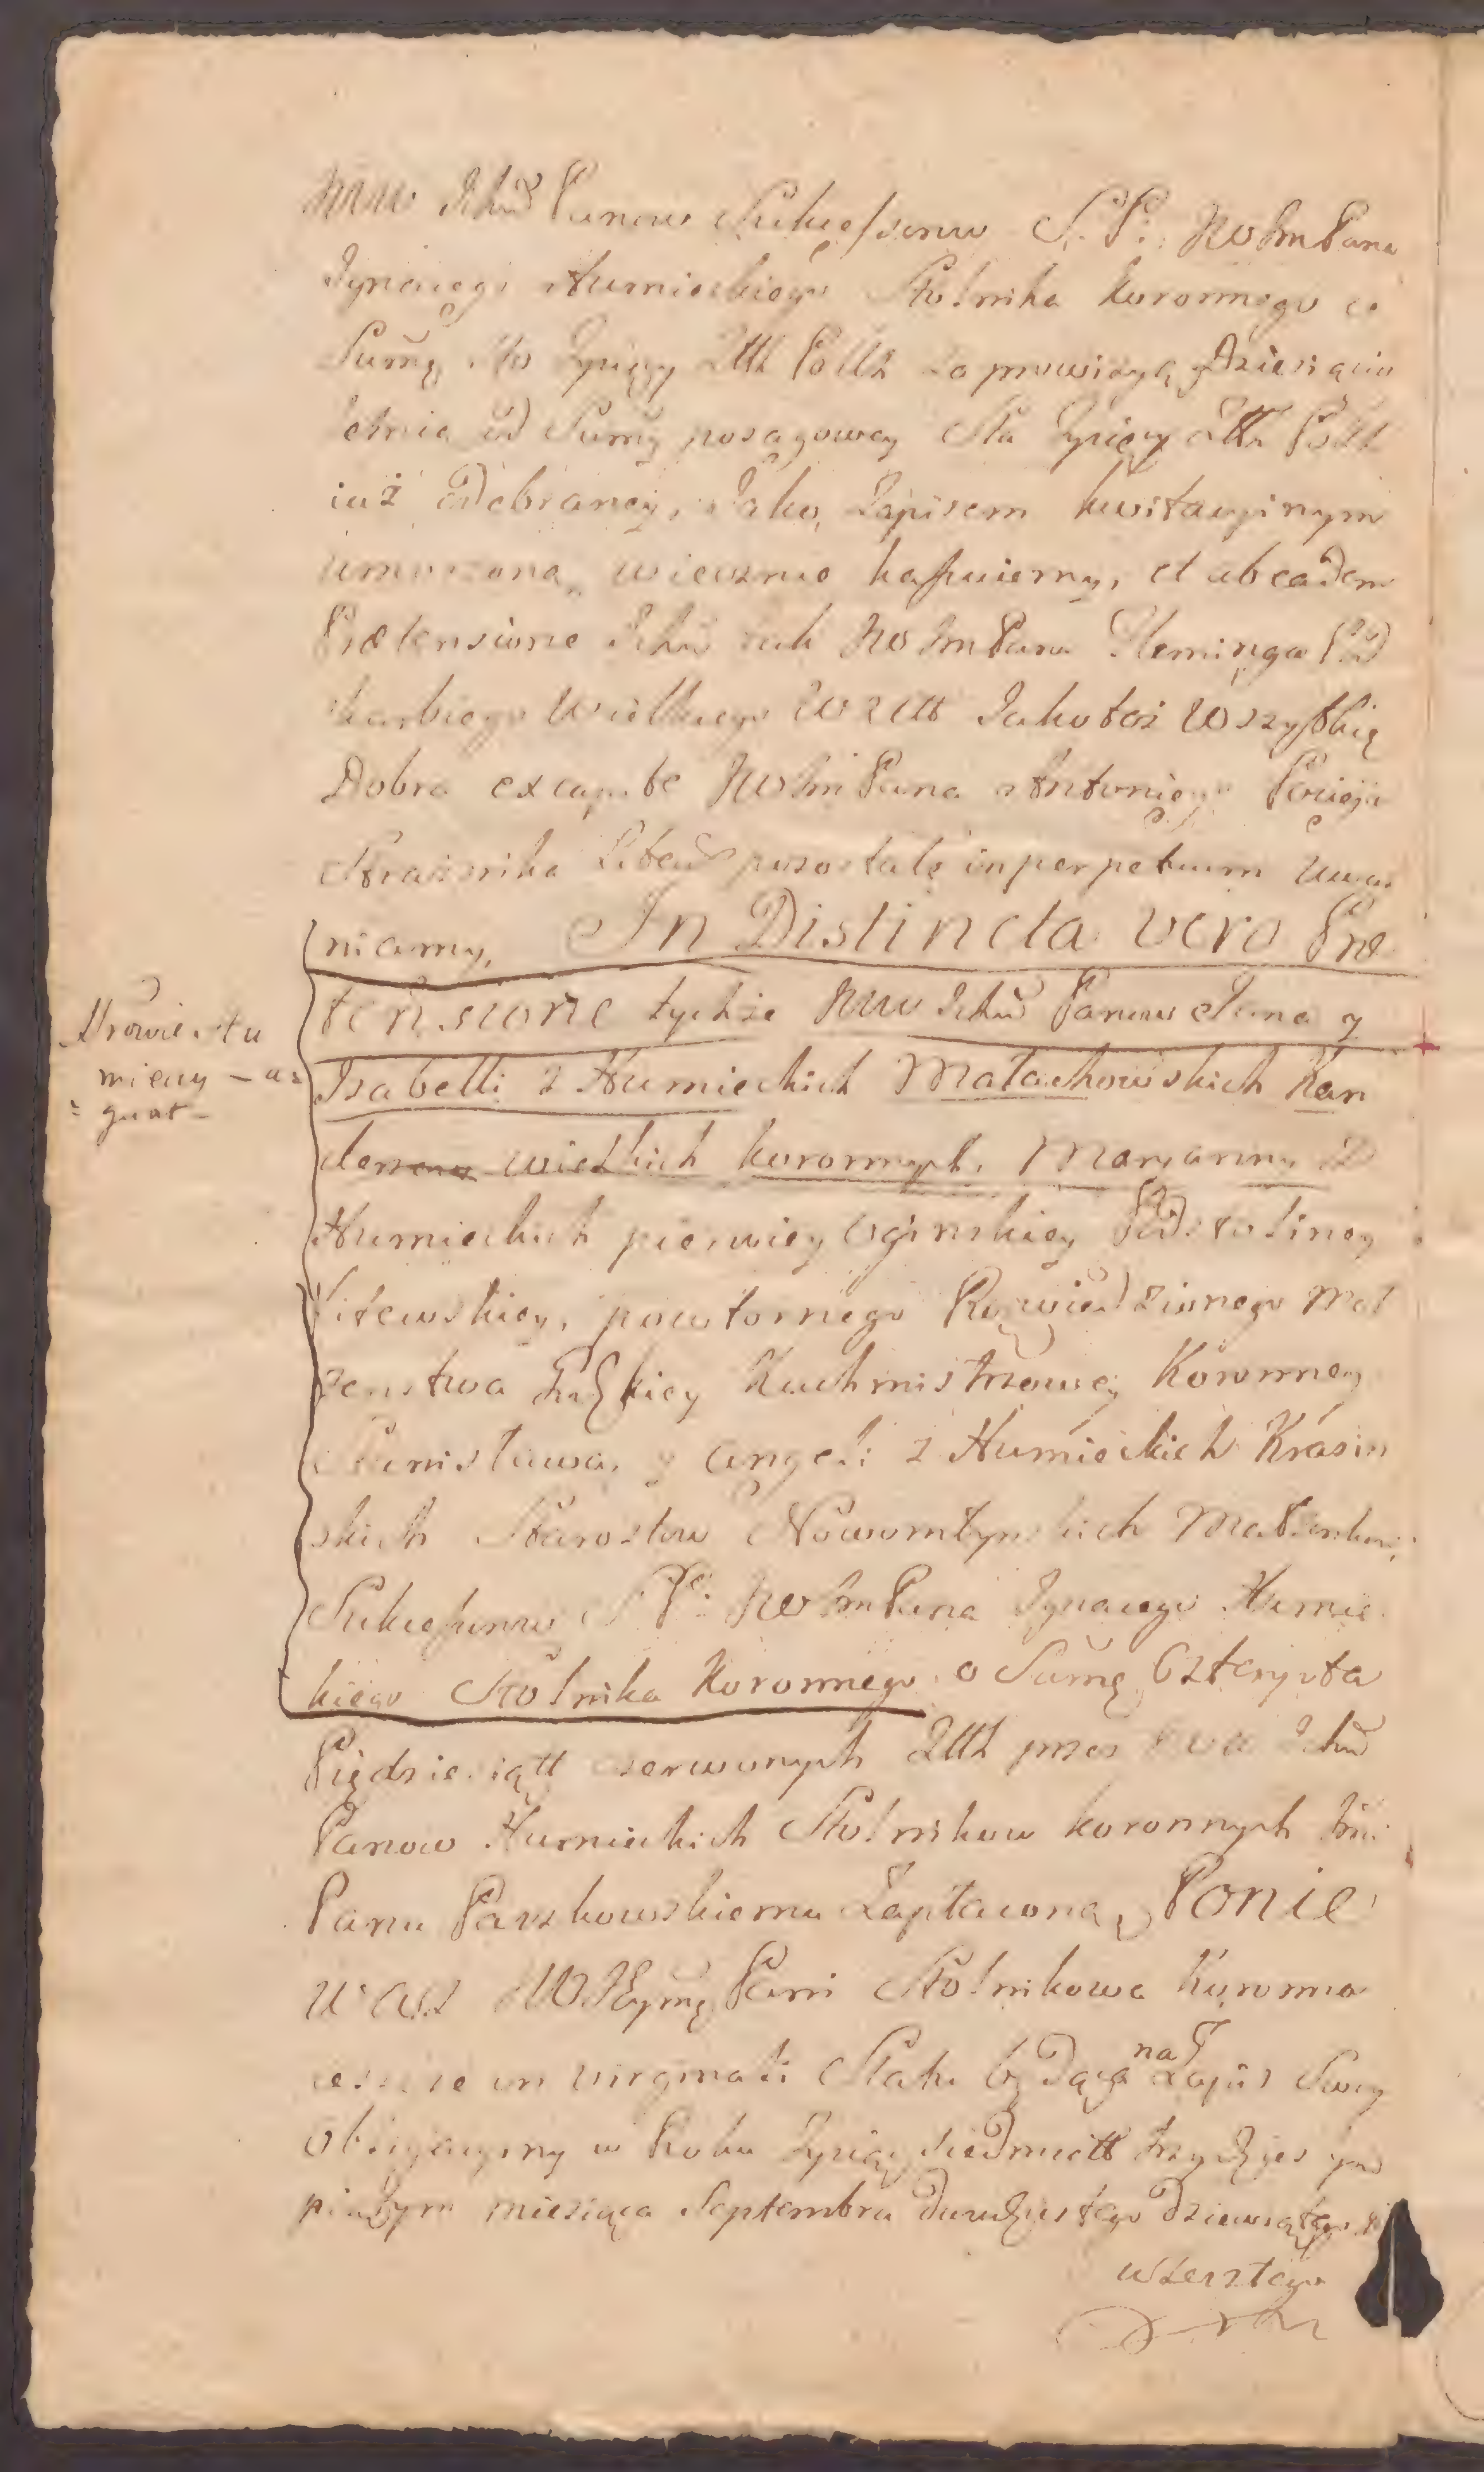 WW Ichm̃ Panow Sukcessorow S. P. W Jm Pana
Ignacego Humieckiego Stolnika Koronnego o
Sum̃ę Sto Tysięcy Złł Polls za prowizyą Dziesięcio
letnią od Sum̃y posagowey Sta Tysięcy Złł Poll
iuż odebraney, Jako Zapisem kwitacyinym
umorzoną, wiecznie kassuiemy, et ab eadem
Prætensione Ichm̃ tak W Jm Pana Fleminga Pod
skarbiego Wielkiego W X Litt Jako też Wszystkię
Dobra ex capite W Jm Pana Antoniego Pocieja
Strażnika Litew pozostałe in perpetuum uwal
niamy, In Distincta vero Præ
tensione tychże WW Ichm̃ Panow Jana y
Izabelli z Humieckich Małachowskich Kan
clerzow wielkich koronnych, Maryanny z
Humieckich pierwiey Oginskiey Podstoliney
Litewskiey, powtornego Rozwiedzionego Mał
zenstwa Kuchmistrzowey Koronney
Stanisława, y Angeli z Humieckich Krasin
skich Starostow Nowomłyńskich Małżonkow,
Sukcessorow S P: W Jm Pana Ignacego Humie
kiego Stolnika Koronnego o Sum̃ę Czterysta
Piędziesiątt czerwonych Złł przez WW Ichm̃
Panow Humieckich Stolnikow koronnych Jm̃
Panu Paszkowskiemu Zapłaconą, Ponie
wasz W Jeym̃ Pani Stolnikowa Koronna
ieszcze in virginali Statu będąca na Zapis Swoy
Obligacyiny w Roku Tysiąc siedmsett trzydziestym
piątym miesiąca Septembra dwudziestego dziewiątego
wszerztego
Wrowie Hu
mieccy – a=
= gnat –